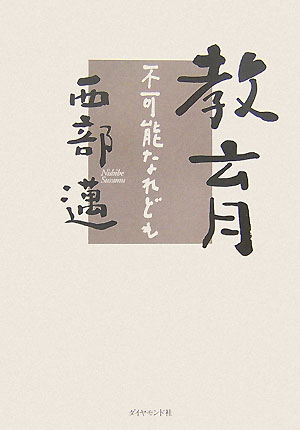 教育
不可能なれども
西部邁
Nishibe
Susumu
ダイヤモンド社